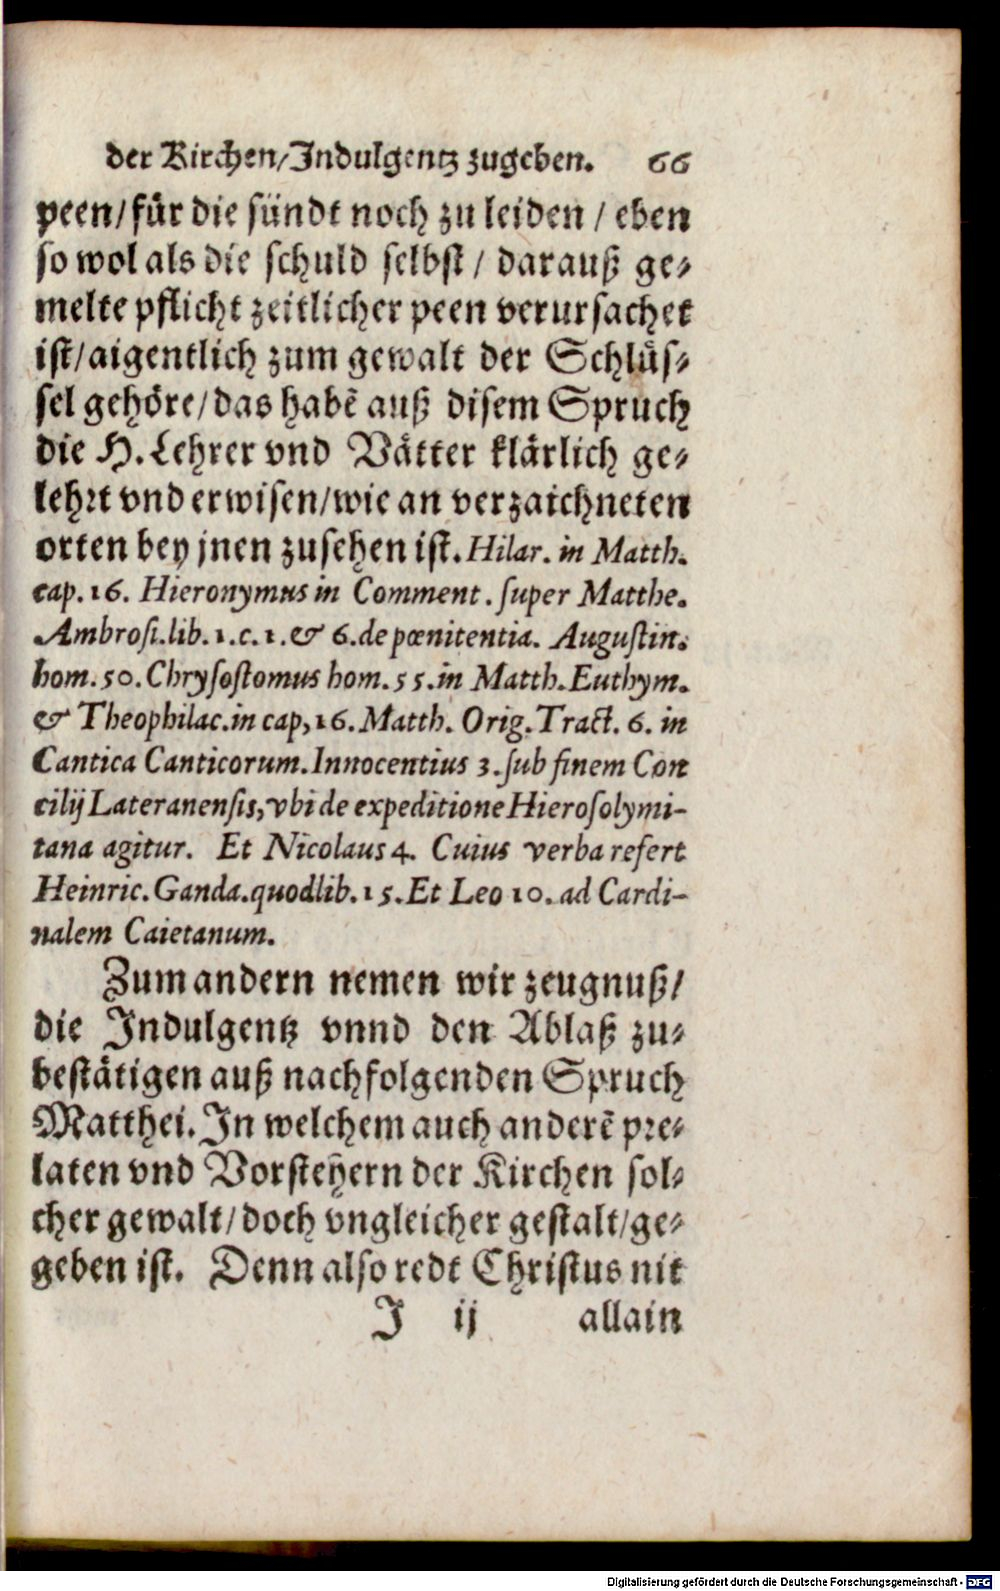 der Kirchen/Indulgentz zugeben. 66
peen/für die sündt noch zu leiden / eben
so wol als die schuld selbst / darauß ge-
melte pflicht zeitlicher peen verursachet
ist/aigentlich zum gewalt der Schlüs-
sel gehöre/das habẽ auß disem Spruch
die H. Lehrer vnd Vätter klärlich ge-
lehrt vnd erwisen/wie an verzaichneten
orten bey jnen zusehen ist. Hilar. in Matth.
cap. 16. Hieronymus in Comment. super Matthe.
Ambrosi. lib. 1. c. 1. & 6. de pœnitentia. Augustin.
hom. 50. Chrysostomus hom. 55. in Matth. Euthym.
& Theophilac. in cap, 16. Matth. Orig. Tract. 6. in
Cantica Canticorum. Innocentius 3. sub finem Con
cilij Lateranensis, vbi de expeditione Hierosolymi-
tana agitur. Et Nicolaus 4. Cuius verba refert
Heinric. Ganda. quodlib. 15. Et Leo 10. ad Cardi-
nalem Caietanum.
Zum andern nemen wir zeugnuß/
die Indulgentz vnnd den Ablaß zu-
bestätigen auß nachfolgenden Spruch
Matthei. In welchem auch anderẽ pre-
laten vnd Vorstehern der Kirchen sol-
cher gewalt/doch vngleicher gestalt/ge-
geben ist. Denn also redt Christus nit
J ij allain
Digitalisierung gefördert durch die Deutsche Forschungsgemeinschaft - DFG